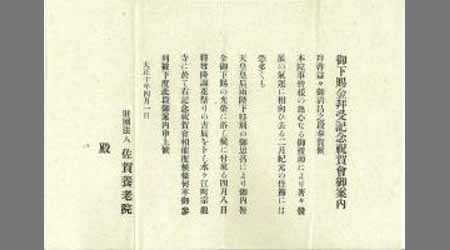 御下賜金拝受記念祝賀會御案内
拝啓益々御清昌之段奉賀候
本院事皆様の熱心なる御援助により着々發
展の氣運に相向ひ去る二月紀元の佳節には
恐多くも
天皇皇后両陛下特別の御思召により御内帑
金御下賜の光榮に浴し候に付來る四月八日
釋尊降誕花祭りの吉辰をトし水ヶ江町宗龍
寺に於て右記念祝賀會相催度候條何卒御参
列被下度此段御案内申上候
大正十年四月一日
財團法人 佐賀養老院
殿